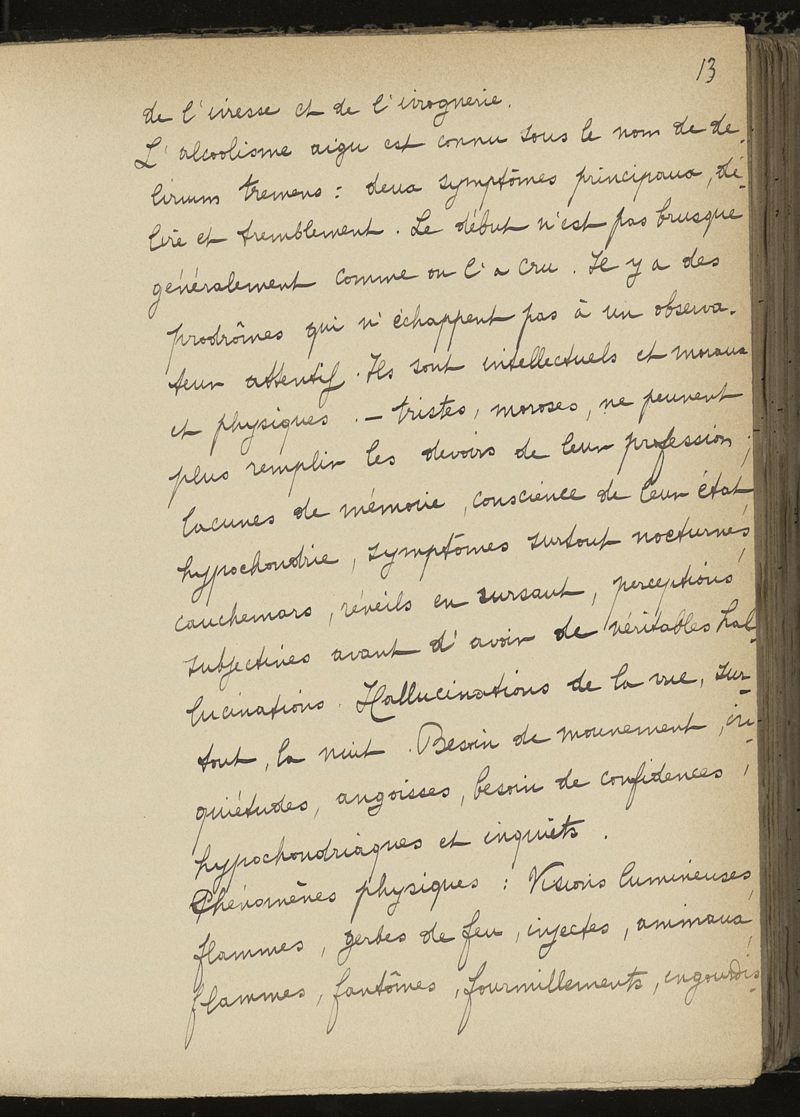 13
de l'ivresse et de l'ivrognerie.
L'alcoolisme aigu est connu sous le nom de de-
lirium tremens : deux symptômes principaux, dé-
lire et tremblement. Le début n'est pas brusque
généralement comme on l'a cru. Il y a des
prodrômes qui n'échappent pas à un observa-
teur attentif. Ils sont intellectuels et moraux
et physiques. — tristes, moroses, ne peuvent
plus remplir les devoirs de leur profession ;
lacunes de mémoire, conscience de leur état,
hypochondrie, symptômes surtout nocturnes,
cauchemars, réveils en sursaut, perceptions
subjectives avant d'avoir de véritables hal-
lucinations. Hallucinations de la vue, sur-
tout, la nuit. Besoin de mouvement, in-
quiétudes, angoisses, besoin de confidences,
hypochondriaques et inquiets.
Phénomènes physiques : Visions lumineuses,
flammes, gerbes de feu, injectes, animaux,
flammes, fantômes, fourmillements, engourdis-